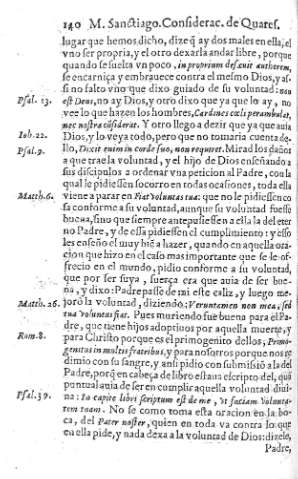 140 M. Sanctiago. Considerac. de Quares.
lugar que hemos dicho, dize q̃ ay dos males en ella, el
vno ser propria, y el otro dexarla andar libre, porque
quando se suelta vn poco, in proprium desæuit authorem,
se encarniça y embrauece contra el mismo Dios, y assi
si no falto vno que dixo guiado de su voluntad: non
Psal. 13. est Deus, no ay Dios, y otro dixo que ya que lo ay, no
vee lo que hazen los hombres, Cardines cœli perambulat,
nec nostra cõsiderat. Y otro llego a dezir que ya que auia
Iob. 22. Dios, y lo veya todo, pero que no tomaria cuenta de-
Psal. 9. llo, Dixit enim in corde suo, non requiret. Mirad los daños
a que trae la voluntad, y el hijo de Dios enseñando a
sus discipulos a ordenar vna peticion al Padre, con la
qual le pidiessen socorro en todas ocasiones, toda ella
Matth. 6. viene a parar en Fiat voluntas tua: que no le pidiessen co
sa conforme a su voluntad, aunque su voluntad fuesse
buena, sino que siempre antepusiessen a ella la del eter
no Padre, y de essa pidiessen el cumplimiento: y esso
les enseño el muy biẽ a hazer, quando en aquella ora-
cion que hizo en el caso mas importante que se le of-
frecio en el mundo, pidio conforme a su voluntad,
que por ser suya, fuerça era que auia de ser bue-
na, y dixo: Padre passe de mi este caliz, y luego me-
Matth. 26. jorò la voluntad, diziendo: Veruntamen non mea, sed
tua voluntas fiat. Pues muriendo fue buena para el Pa-
dre, que tiene hijos adoptiuos por aquella muerte, y
Rom. 8. para Christo porque es el primogenito dellos, Primo-
genitus in multis fratribus, y para nosotros porque nos re
dimio con su sangre, y ansi pidio con submissiõ a la del
Padre, porq̃ en cabeça de libro estaua escripto del, quã
puntual auia de ser en cumplir aquella voluntad diui-
Psal. 39. na: In capite libri scriptum est de me, vt faciam volunta-
tem tuam. No se como toma esta oracion en la bo-
ca, del Pater noster, quien en toda va contra lo que
en ella pide, y nada dexa a la voluntad de Dios: dizele,
Padre,